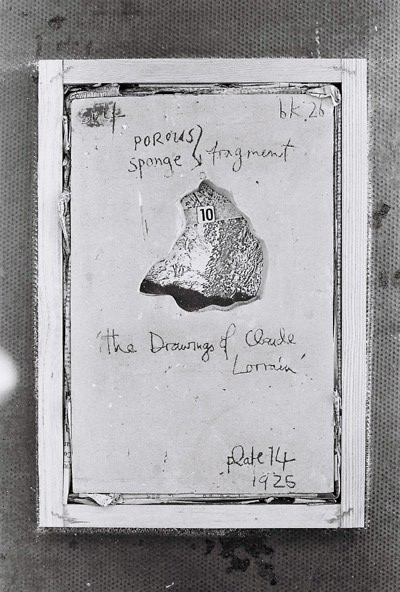 bk.26
POROUS } fragment
sponge
10
'The Drawings of Claude
Lorrain'
plate 74
1925